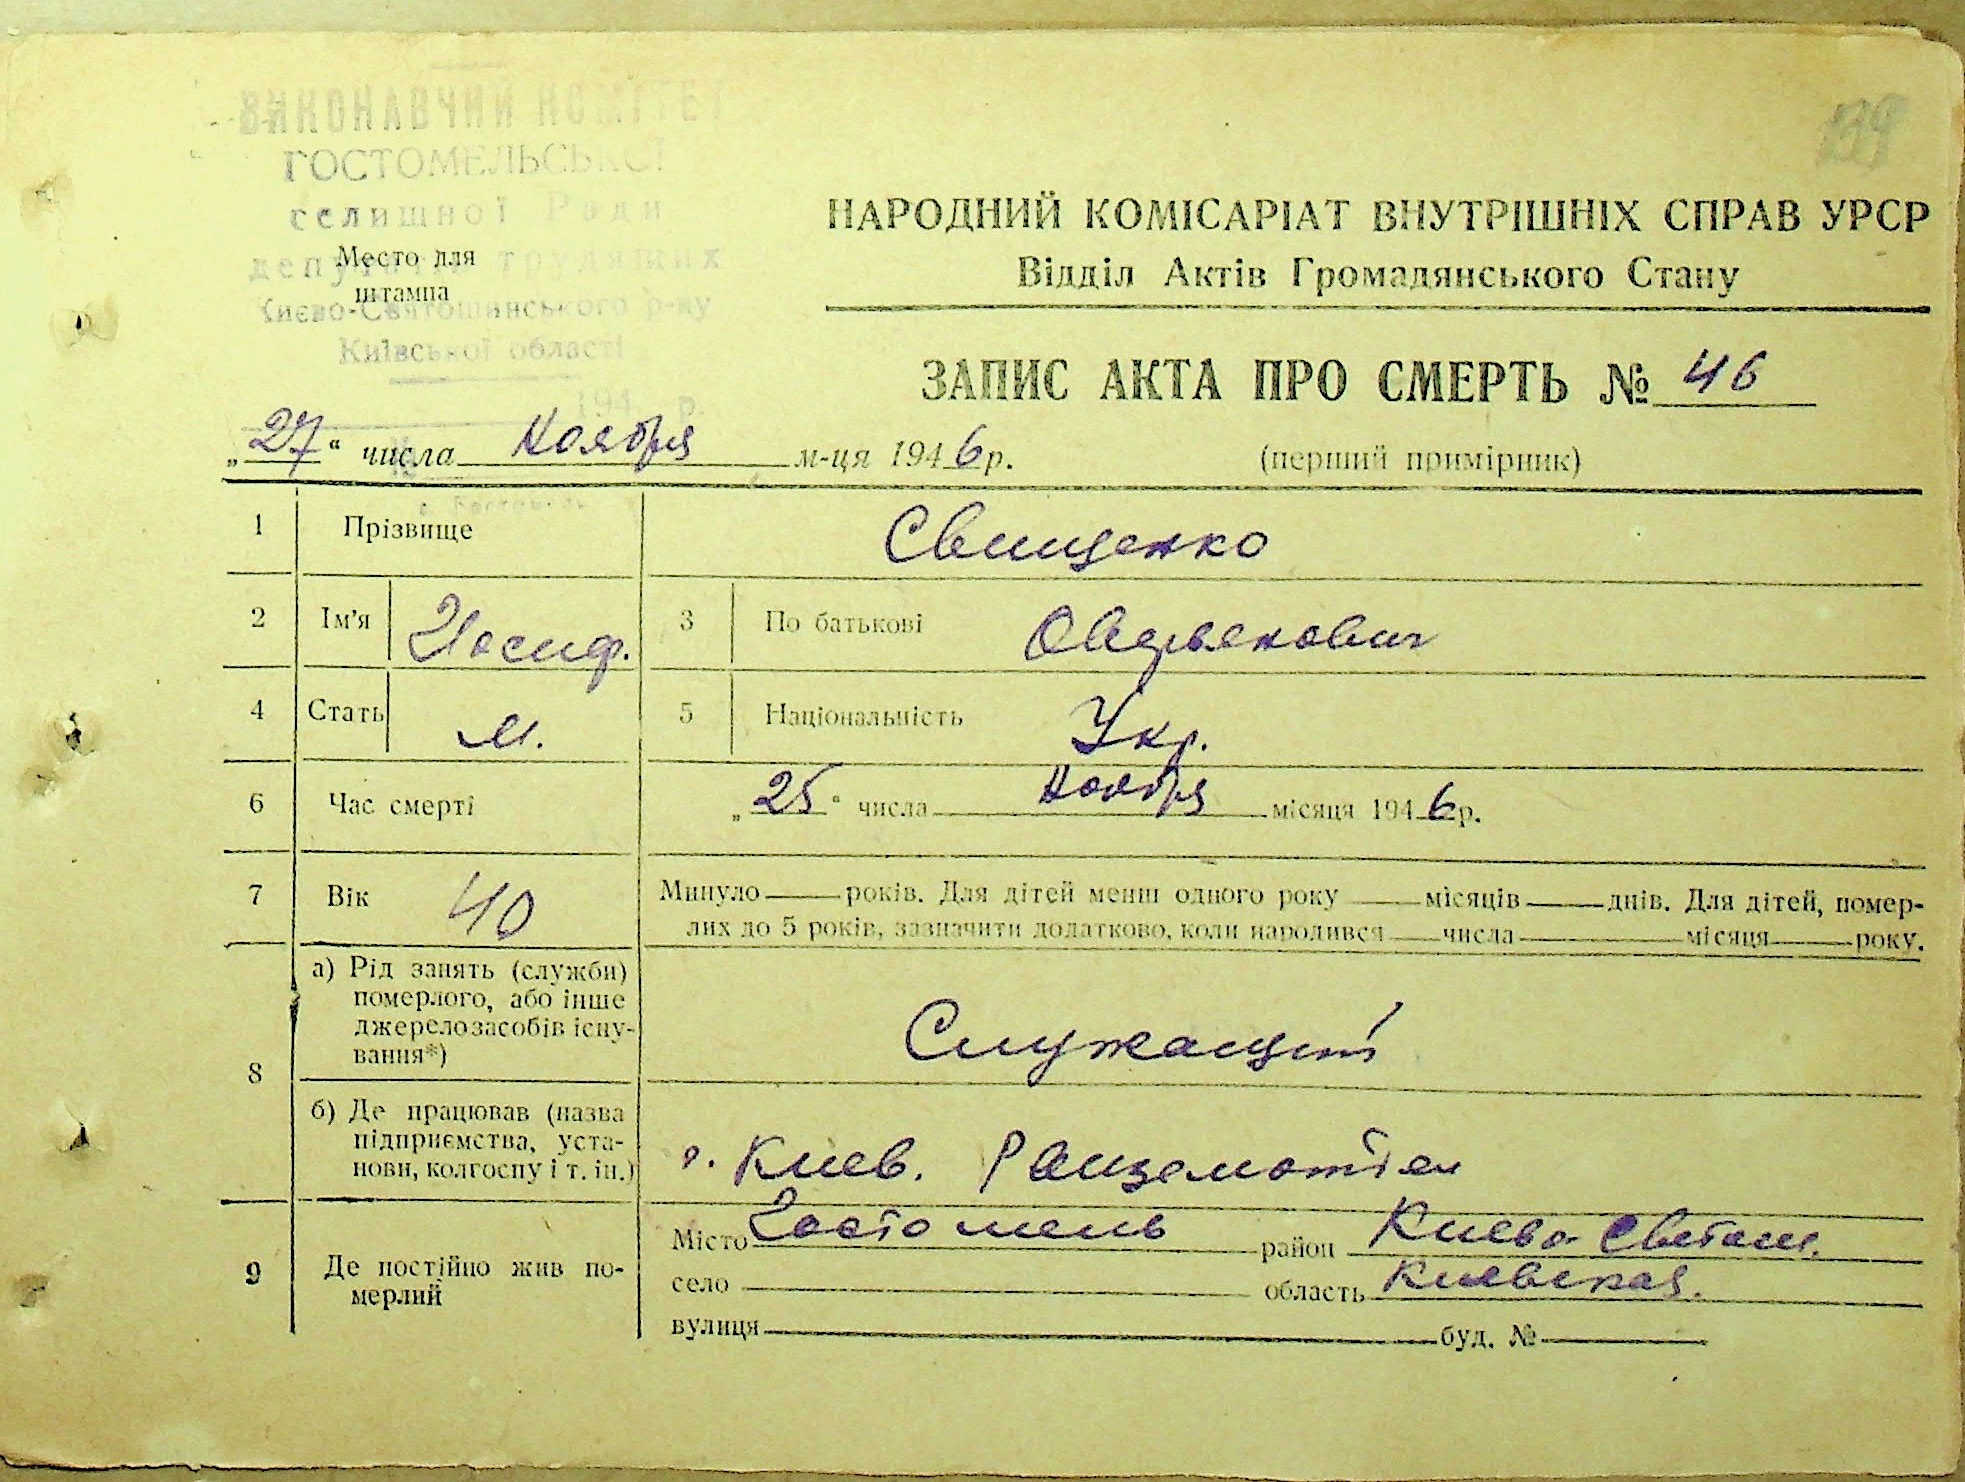 139
ВИКОНАВЧИЙ КОМІТЕТ
ГОСТОМЕЛЬСЬКОЇ
селищної Ради
депутатів трудящих
Києво-Святошинського р-ну
Київської області
194 р.
Место для
штампа
НАРОДНИЙ КОМІСАРІАТ ВНУТРІШНІХ СПРАВ УРСР
Відділ Актів Громадянського Стану
ЗАПИС АКТА ПРО СМЕРТЬ № 46
„27“ числа Ноября м-ця 1946 р. (перший примірник)
1 Прізвище Свищенко
2 Ім'я Иосиф. 3 По батькові
4 Стать м. 5 Національність Укр.
6 Час смерті „25“ числа Ноября місяця 1946 р.
7 Вік 40 Минуло років. Для дітей менш одного року місяців днів. Для дітей, помер-
лих до 5 років, зазначити додатково, коли народився числа місяця року.
8 а) Рід занять (служби)
померлого, або інше
джерело засобів існу-
вання*)
Служащий
б) Де працював (назва
підприємства, уста-
нови, колгоспу і т. ін.)
г. Киев.
9 Де постійно жив по-
мерлий
Місто Гостомель район Киево-Светош.
село область Киевская.
вулиця буд. №